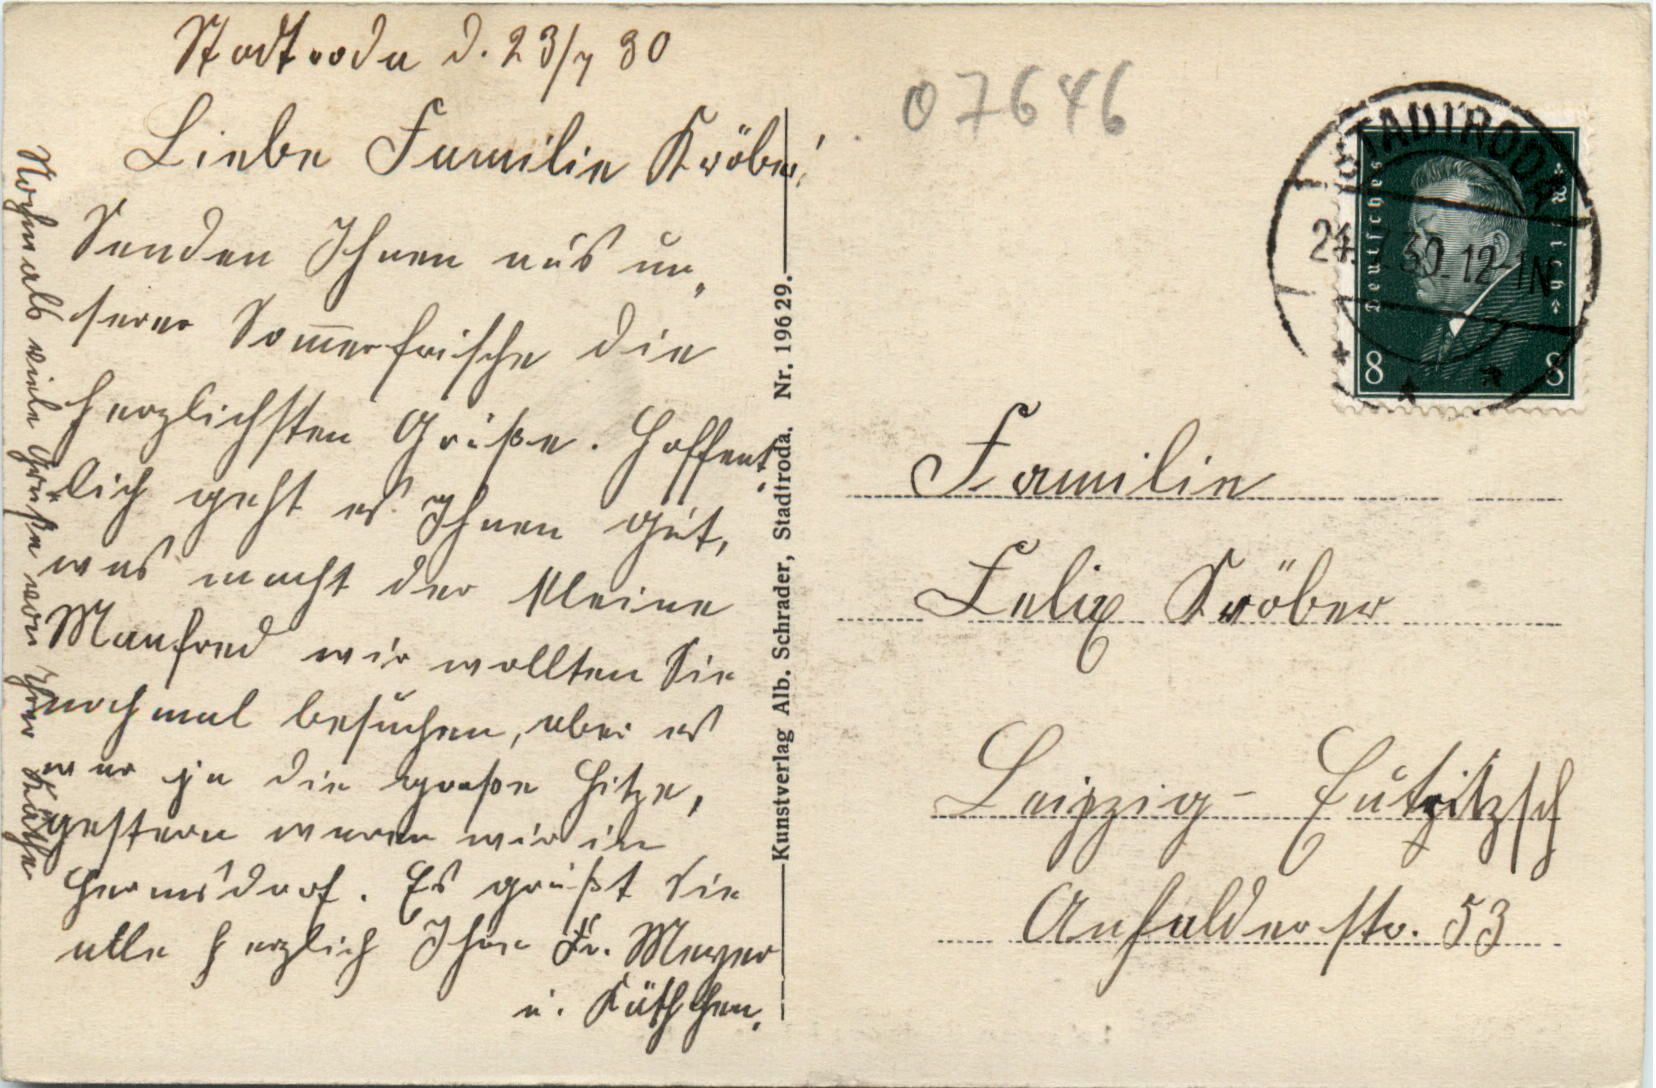 Stadtroda d. 23/7 30
Liebe Familie Kröber!
Senden Ihnen aus un-
serer Sommerfrische die
herzlichsten Grüße. Hoffent-
lich geht es Ihnen gut,
was macht der kleine
Manfred wir wollten Sie
nochmal besuchen, aber es
war ja die große Hitze,
gestern waren wir in
Hermsdorf. Es grüßt Sie
alle herzlich Ihre Fr. Meyer
u. Käthchen.
Nochmals viele Grüße von Ihrer Käthe
Kunstverlag Alb. Schrader, Stadtroda. Nr. 19629.
07646
STADTRODA
24.7.30.12-1N
Deutsches Reich
8 8
Familie
Felix Kröber
Leipzig- Eutritzsch
Anhalderstr. 53